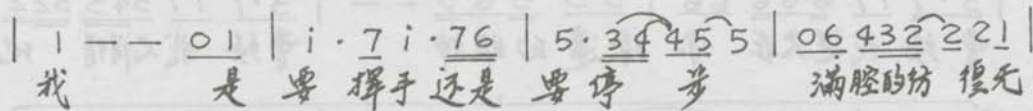 | 1 - - 0 1 | i · 7 i · 7 6 | 5 · 3 4 4 5 5 | 0 6 4 3 2 2 2 1 |
我 是 要 挥手 还是 要 停 步 满腔的彷 徨无